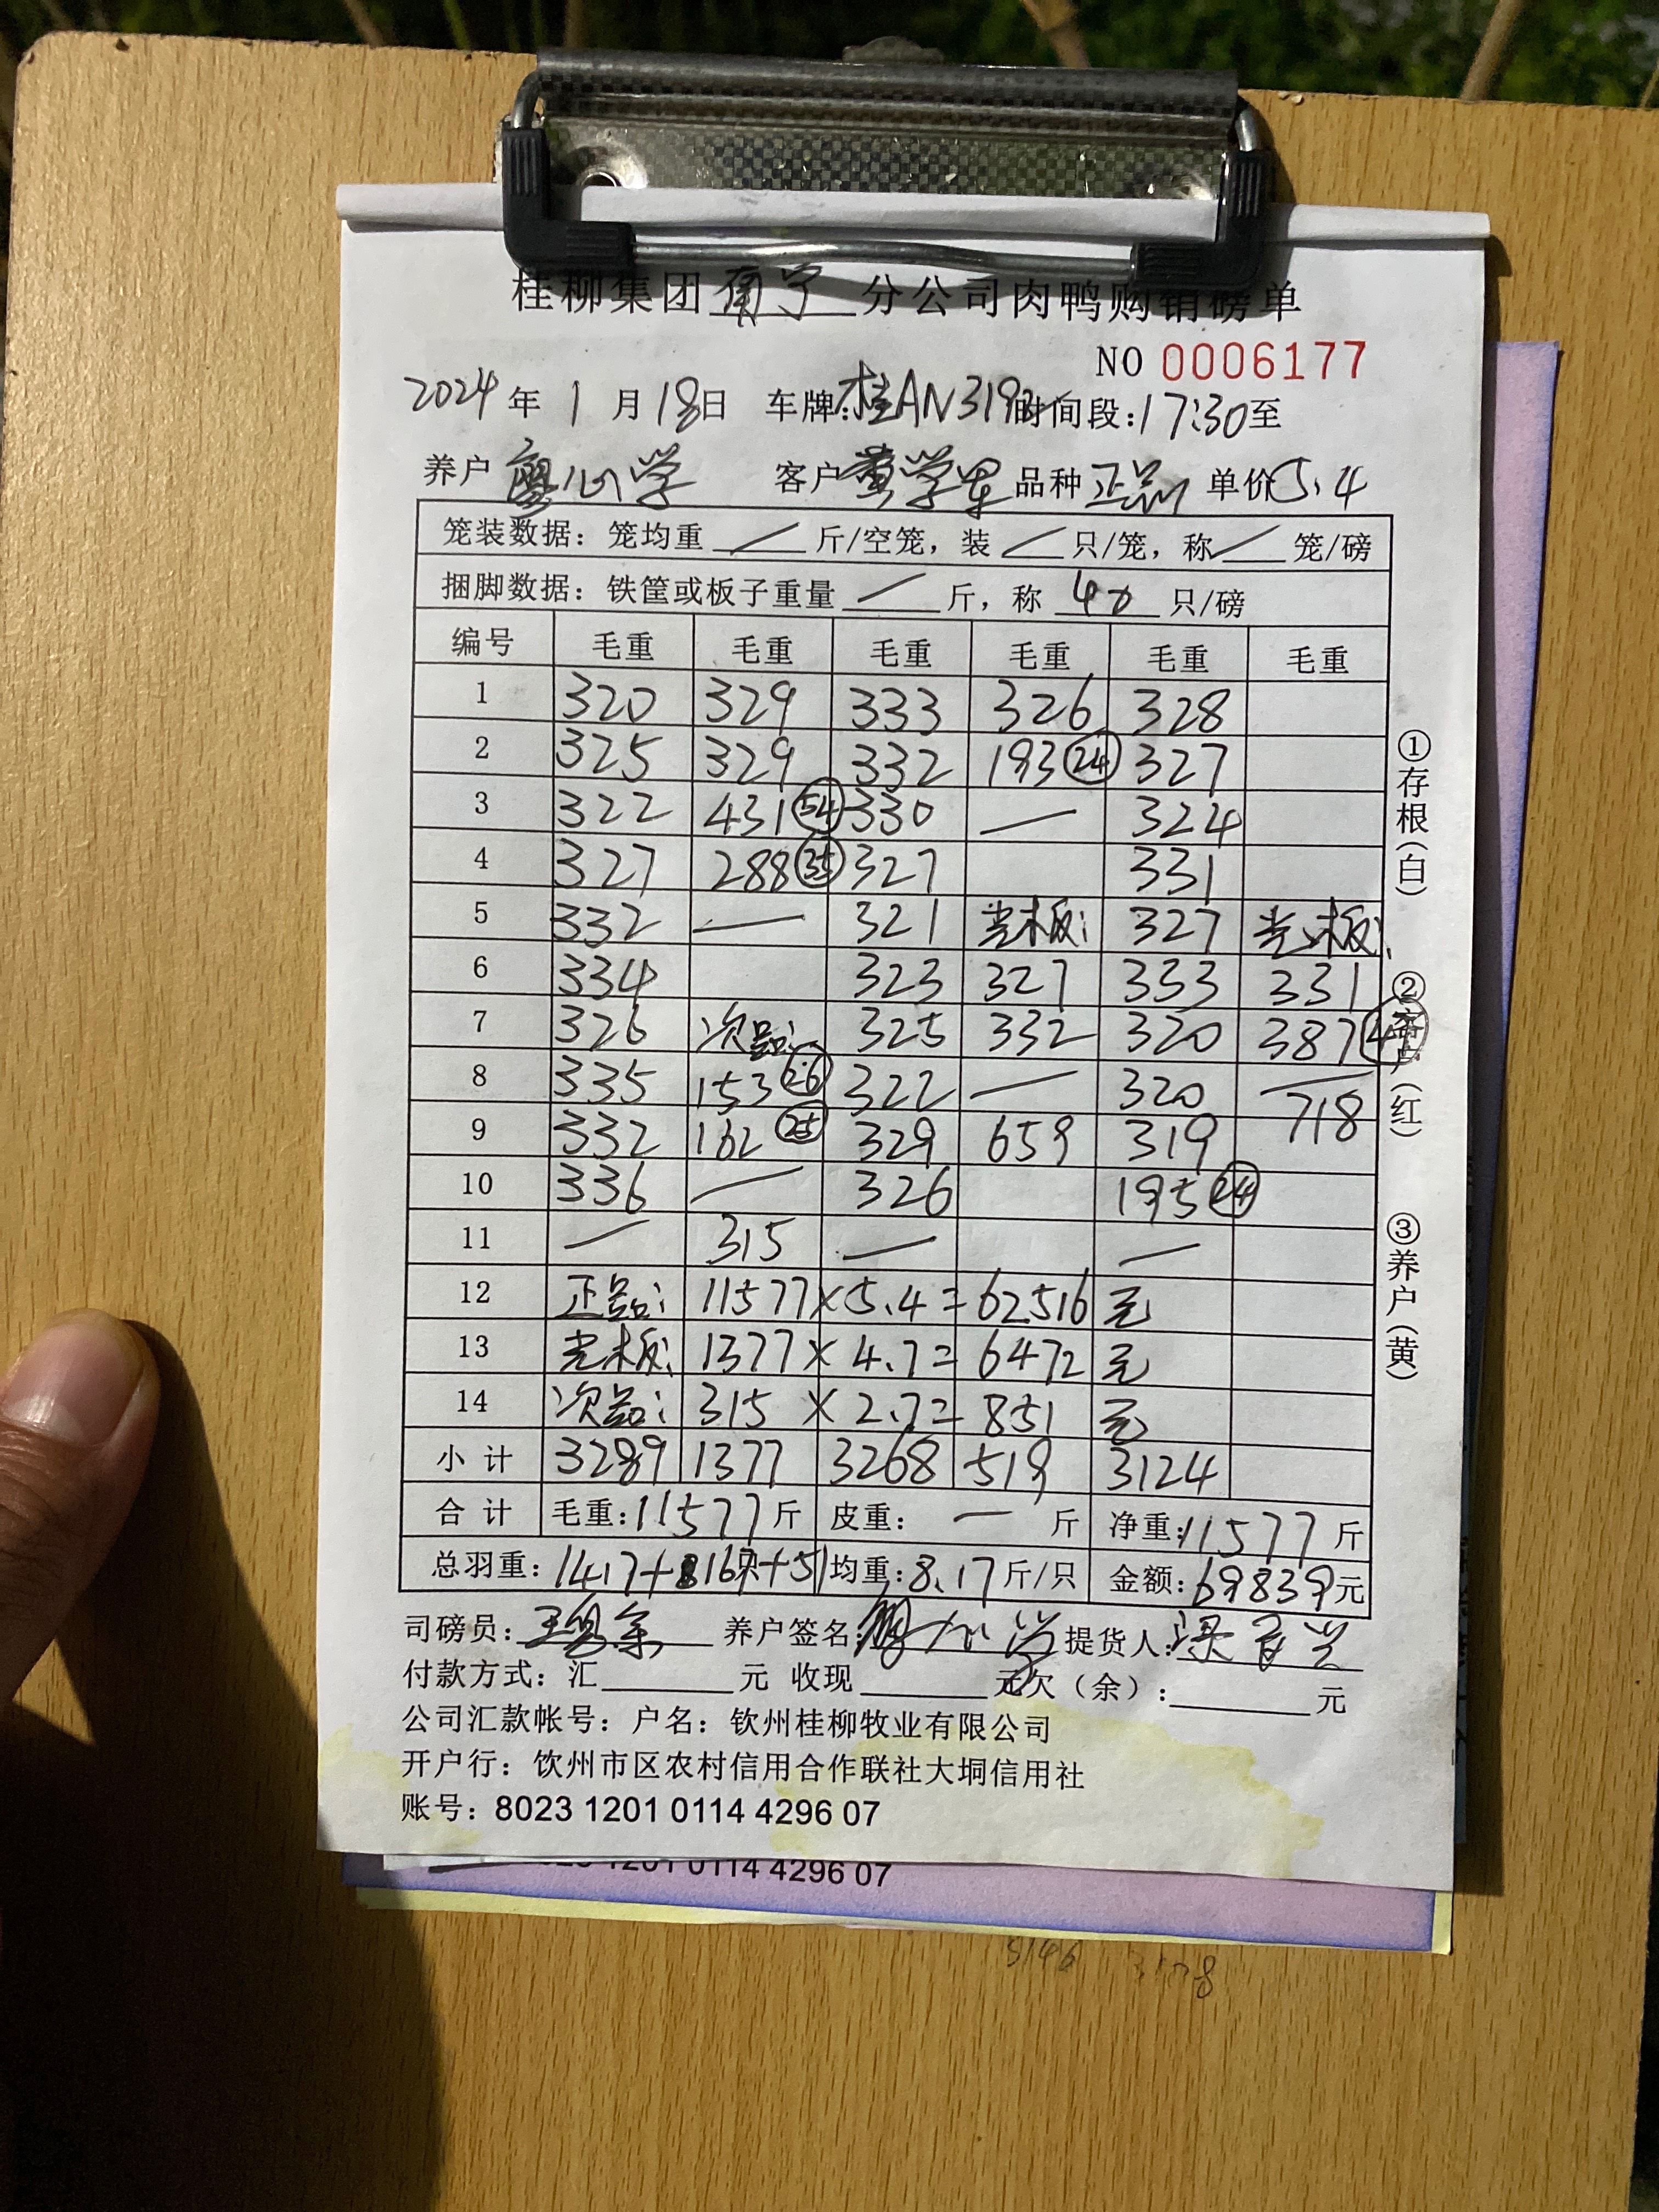 桂柳集团南宁分公司肉鸭购销磅单
NO 0006177
2024年1月18日 车牌:桂AN319 时间段:17:30至
养户 廖心学 客户 黄学军 品种 正品 单价5.4
笼装数据：笼均重 / 斤/空笼，装 / 只/笼，称 / 笼/磅
捆脚数据：铁筐或板子重量 / 斤，称 40 只/磅
编号 毛重 毛重 毛重 毛重 毛重 毛重
1 320 329 333 326 328
2 325 329 332 193 24 327
3 322 431 54 330 — 324
4 327 288 35 327 331
5 332 — 321 光板: 327 光板:
6 334 323 327 333 331
7 326 次品: 325 332 320 387
8 335 153 26 322 — 320 —
9 332 162 25 329 659 319 718
10 336 — 326 195 24
11 — 315 — —
12 正品: 11577×5.4=62516元
13 光板: 1377×4.7=6472元
14 次品: 315×2.7=851元
小计 3289 1377 3268 519 3124
合计 毛重:11577斤 皮重: — 斤 净重:11577斤
总羽重:1417+167+51 均重:8.17斤/只 金额:69839元
司磅员: 养户签名: 提货人:
付款方式：汇 元 收现 元 欠（余）: 元
公司汇款帐号：户名：钦州桂柳牧业有限公司
开户行：饮州市区农村信用合作联社大垌信用社
账号：8023 1201 0114 4296 07
①存根(白)
②客户(红)
③养户(黄)
1201 0114 4296 07